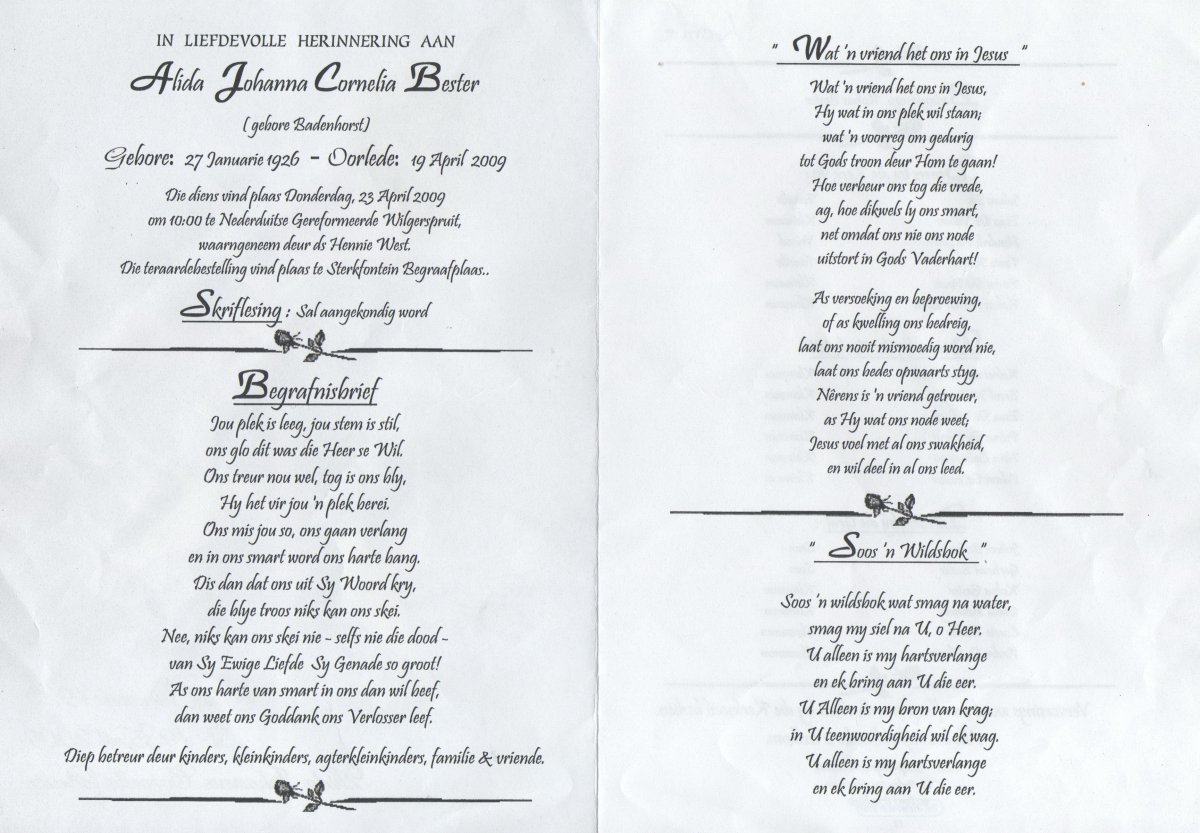 IN LIEFDEVOLLE HERINNERING AAN
Alida Johanna Cornelia Bester
( gebore Badenhorst)
Gebore: 27 Januarie 1926 - Oorlede: 19 April 2009
Die diens vind plaas Donderdag, 23 April 2009
om 10:00 te Nederduitse Gereformeerde Wilgerspruit,
waarngeneem deur ds Hennie West.
Die teraardebestelling vind plaas te Sterkfontein Begraafplaas..
Skriflesing : Sal aangekondig word
Begrafnisbrief
Jou plek is leeg, jou stem is stil,
ons glo dit was die Heer se Wil.
Ons treur nou wel, tog is ons bly,
Hy het vir jou 'n plek berei.
Ons mis jou so, ons gaan verlang
en in ons smart word ons harte bang.
Dis dan dat ons uit Sy Woord kry,
die blye troos niks kan ons skei.
Nee, niks kan ons skei nie - selfs nie die dood -
van Sy Ewige Liefde Sy Genade so groot!
As ons harte van smart in ons dan wil beef,
dan weet ons Goddank ons Verlosser leef.
Diep betreur deur kinders, kleinkinders, agterkleinkinders, familie & vriende.
" Wat 'n vriend het ons in Jesus "
Wat 'n vriend het ons in Jesus,
Hy wat in ons plek wil staan;
wat 'n voorreg om gedurig
tot Gods troon deur Hom te gaan!
Hoe verbeur ons tog die vrede,
ag, hoe dikwels ly ons smart,
net omdat ons nie ons node
uitstort in Gods Vaderhart!
As versoeking en beproewing,
of as kwelling ons bedreig,
laat ons nooit mismoedig word nie,
laat ons bedes opwaarts styg.
Nêrens is 'n vriend getrouer,
as Hy wat ons node weet;
Jesus voel met al ons swakheid,
en wil deel in al ons leed.
" Soos 'n Wildsbok "
Soos 'n wildsbok wat smag na water,
smag my siel na U, o Heer.
U alleen is my hartsverlange
en ek bring aan U die eer.
U Alleen is my bron van krag;
in U teenwoordigheid wil ek wag.
U alleen is my hartsverlange
en ek bring aan U die eer.